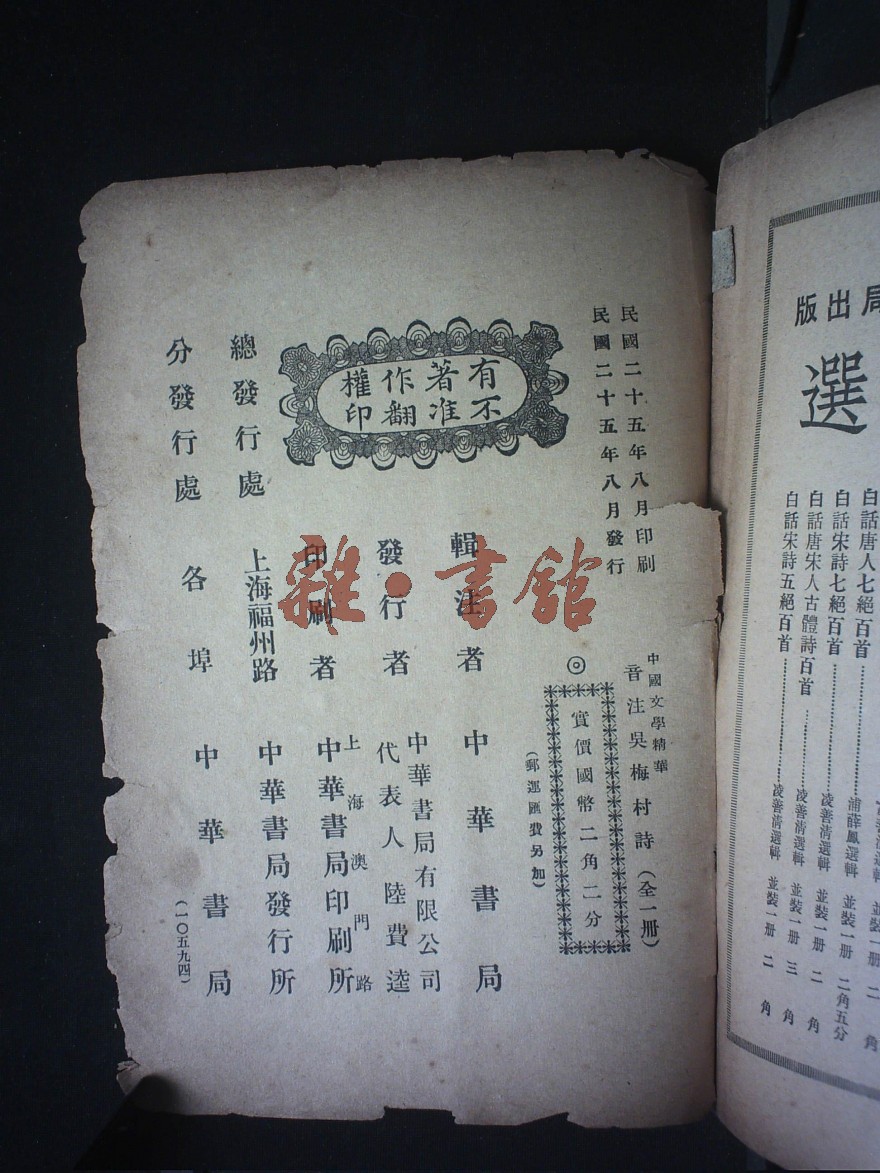 局出版
選
白話唐人七絕百首 浦薛鳳選輯 並裝一册 二角
白話宋詩七絕百首 凌善清選輯 並裝一册 二角五分
白話唐宋人古體詩百首 凌善清選輯 並裝一册 二角
白話宋詩五絕百首 凌善清選輯 並裝一册 二角
民國二十五年八月印刷
民國二十五年八月發行
有著作權
不准翻印
中國文學精華
音注吳梅村詩(全一册)
◎
實價國幣二角二分
(郵運匯費另加)
輯注者 中華書局
發行者 中華書局有限公司
代表人 陸費逵
印刷者 上海澳門路
中華書局印刷所
總發行處 上海福州路 中華書局發行所
分發行處 各埠 中華書局
(一〇五九四)
雜·書館